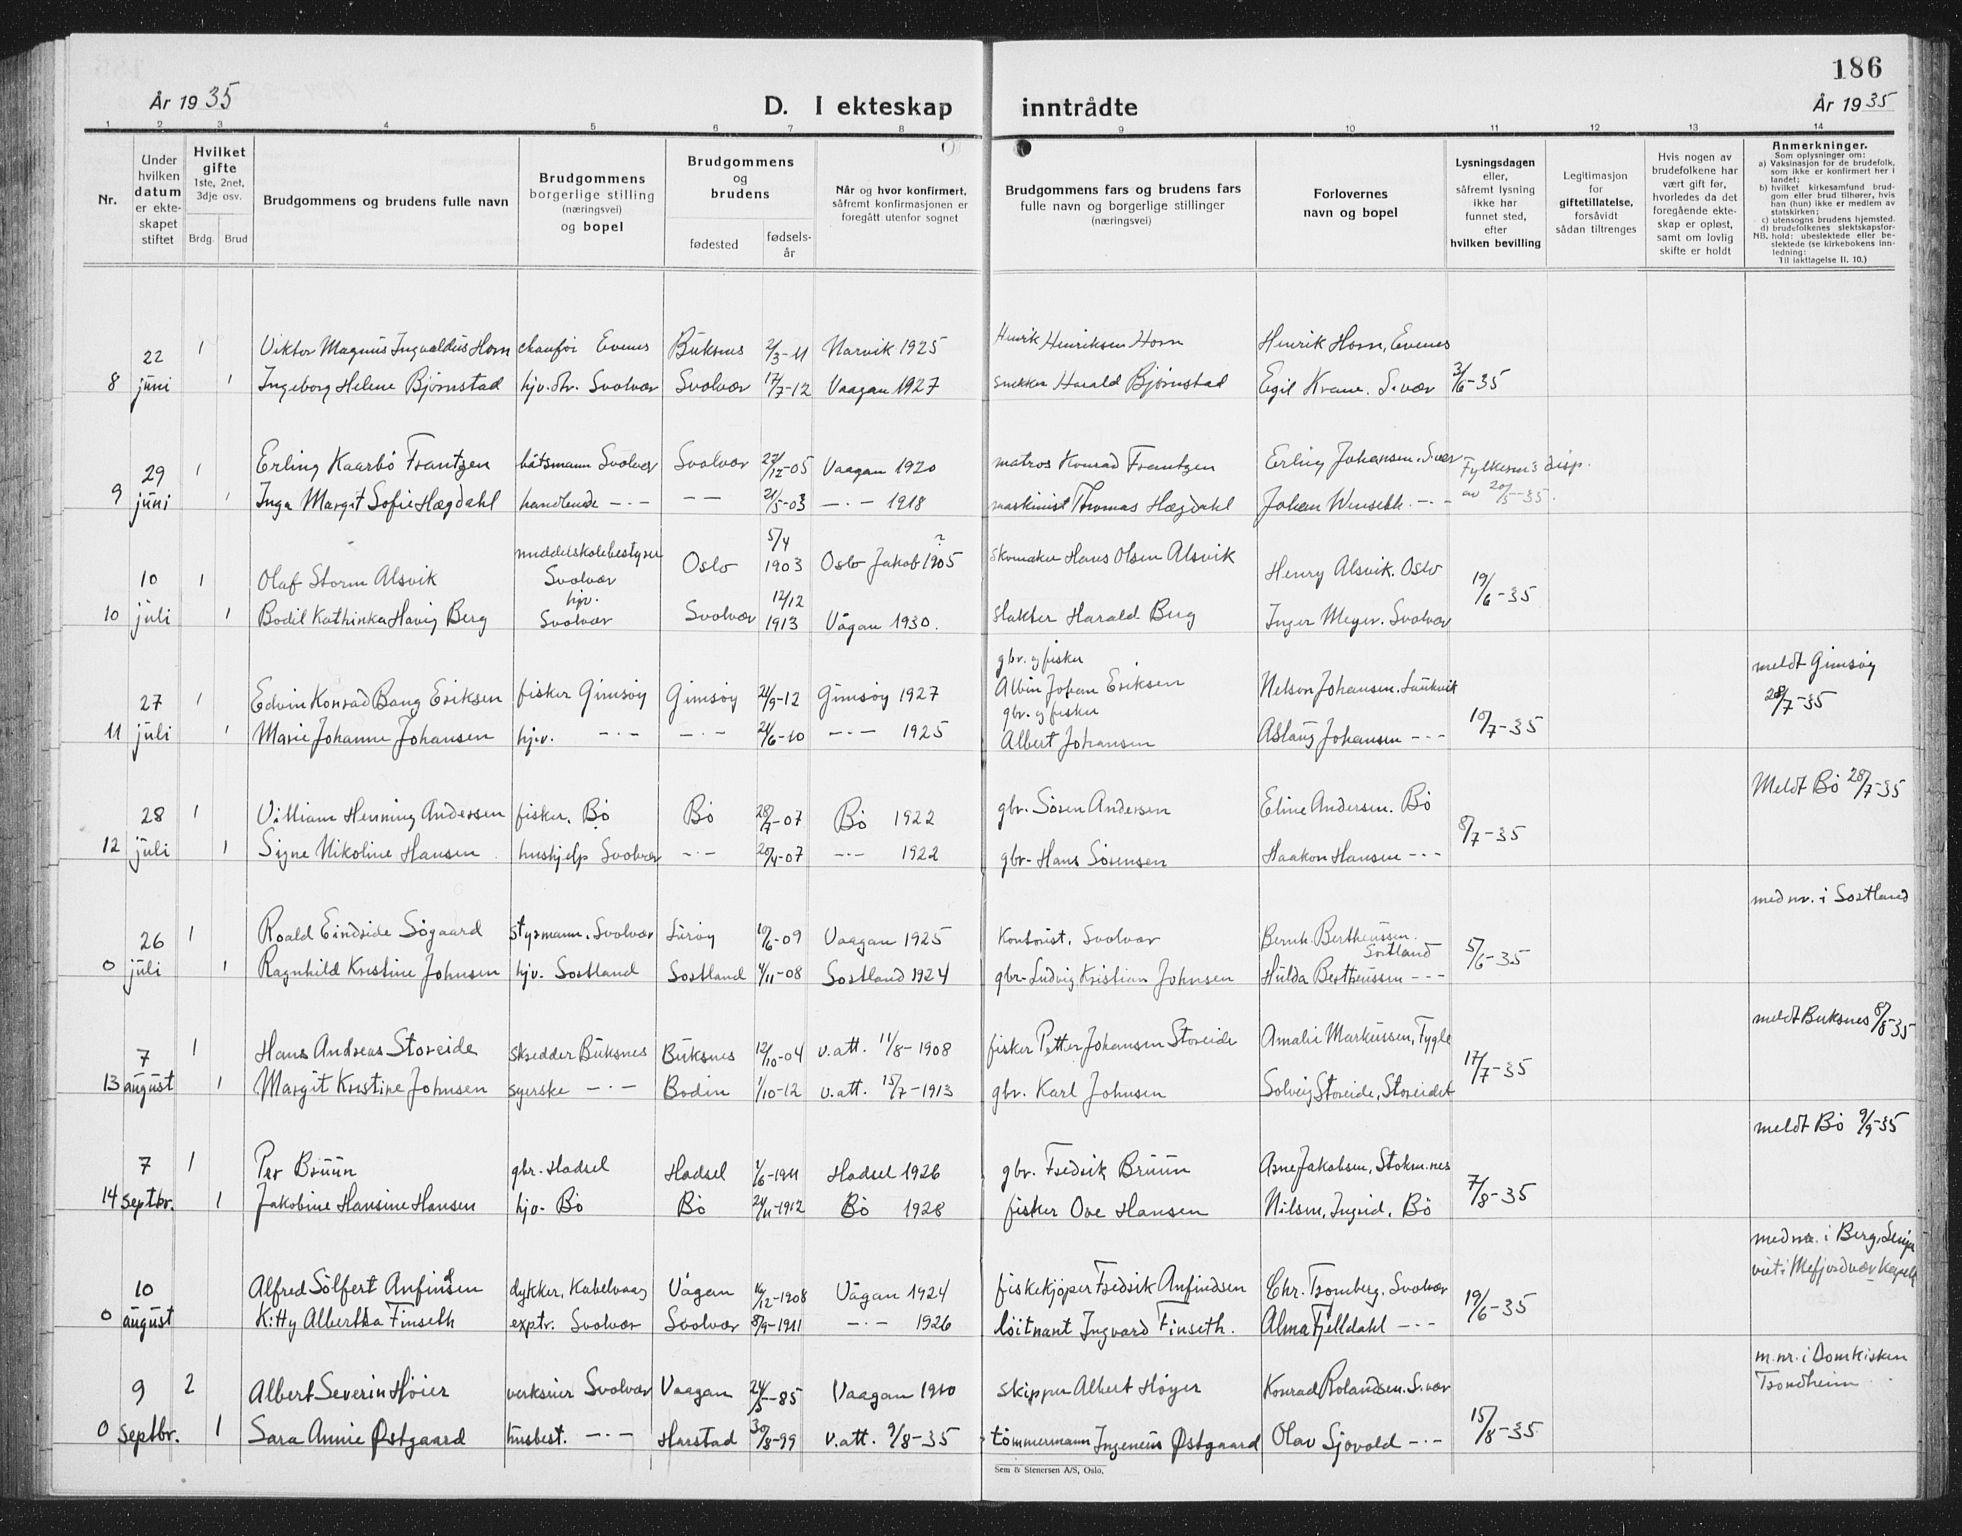 186
År 1935
D. I ekteskap inntrådte
År 1935
1 2 3 4 5 6 7 8 9 10 11 12 13 14
Nr.
Under hvilken datum er ekteskapet stiftet
Hvilket gifte 1ste, 2net, 3dje osv.
Brdg. Brud
Brudgommens og brudens fulle navn
Brudgommens borgerlige stilling (næringsvei) og bopel
Brudgommens og brudens
fødested fødsels-år
Når og hvor konfirmert, såfremt konfirmasjonen er foregått utenfor sognet
Brudgommens fars og brudens fars fulle navn og borgerlige stillinger (næringsvei)
Forlovernes navn og bopel
Lysningsdagen eller, såfremt lysning ikke har funnet sted, efter hvilken bevilling
Legitimasjon for giftetillatelse, forsåvidt sådan tiltrenges
Hvis nogen av brudefolkene har vært gift før, hvorledes da det foregående ekteskap er opløst, samt om lovlig skifte er holdt
Anmerkninger.
Som oplysninger om:
a) Vaksinasjon for de brudefolk, som ikke er konfirmert her i landet;
b) hvilket kirkesamfund brudgom eller brud tilhører, hvis han (hun) ikke er medlem av statskirken;
c) utensogns brudens hjemsted.
d) brudefolkenes slektskapsforhold: ubeslektede eller beslektede (se kirkebokens innledning:
NB.
Til iakttagelse II. 10.)
22 1 Viktor Magnus Ingvaldus Horn chauför Evenes Buksnes 2/3-11 Narvik 1925 Henrik Henriksen Horn Henrik Horn, Evenes
8 juni 1 Ingeborg Helene Bjørnstad hjv. Svolvær Svolvær 17/7-12 Vaagan 1927 snekker Harald Bjørnstad Egil Krane. S.vær 3/6-35
29 1 Erling Kaarbö Frantzen båtsmann Svolvær Svolvær 27/12-05 Vaagan 1920 matros Konrad Frantzen Erling Johansen. S.vær Fylkesm's disp.
9 juni 1 Inga Margit Sofie Hægdahl handlende -·- -- 21/5-03 -·- 1918 maskinist Thomas Hægdahl Johan -·- av 20/5-35.
10 1 Olaf Storm Alsvik middelskolebestyrer Svolvær Oslo 5/4 1903 Oslo Jakob 1905 ? skomaker Hans Olsen Alsvik Henry Alsvik. Oslo
10 juli 1 Bodil Kathinka Havig Berg hjv. Svolvær Svolvær 12/12 1913 Vågan 1930. slakter Harald Berg Inger Meyer. Svolvær 19/6-35
27 1 Edvin Konrad Bang Eriksen fisker Gimsöy Gimsöy 21/9-12 Gimsöy 1927 gbr. og fisker Albin Johan Eriksen Nelson Johansen. Laukvik meldt Gimsöy 28/7-35
11 juli 1 Marie Johanne Johansen hjv. -·- -·- 21/6-10 -·- 1925 gbr. og fisker Albert Johansen Aslaug Johansen -·- 10/7-35
28 1 Villiam Henning Andersen fisker. Bö Bö 28/7-07 Bö 1922 gbr. Sören Andersen Eline Andersen. Bö Meldt Bö 28/7-35
12 juli 1 Signe Nikoline Hansen hushjelp Svolvær -·- 20/4-07 -·- 1922 gbr. Hans Sörensen Haakon Hansen -·- 8/7-35
26 1 Roald Eindride Sögaard styrmann. Svolvær 10/6-09 Vaagan 1925 Kontorist. Svolvær Bernh. Bertheussen. Sortland med nr. i Sortland
0 juli 1 Ragnhild Kristine Johnsen hjv. Sortland Sortland 4/11-08 Sortland 1924 gbr. Ludvig Kristian Johnsen Hulda Bertheussen -·- 5/6-35
7 1 Hans Andreas Storeide skredder Buksnes Buksnes 12/10-04 v.att. 11/8-1908 fisker Petter Johansen Storeide Amalie Markussen, Fygle meldt Buksnes 8/8-35
13 august 1 Margit Kristine Johnsen syerske -·- Bodin 1/10-12 v.att. 15/7-1913 gbr. Karl Johnsen Solveig Storeide, Storeidet 17/7-35
7 1 Per Bruun gbr. Hadsel Hadsel 1/6-1911 Hadsel 1926 gbr. Fredrik Bruun Arne Jakobsen, Stokm.nes meldt Bö 9/9-35
14 septbr. 1 Jakobine Hansine Hansen hjv. Bö Bö 24/11-1912 Bö 1928 fisker Ove Hansen Nilsen, Ingrid, Bö 7/8-35
10 Alfred Sölfert Anfindsen dykker, Kabelvaag Vågan 16/12-1908 Vågan 1924 fiskekjöper Fredrik Anfindsen Chr. Tromberg. Svolvær med nr. i Berg, Senja viet i Mefjordvær kapell
0 august Kitty Albertha Finseth exptr. Svolvær Svolvær 8/9-1911 -·- 1926 löitnant Ingvard Finseth. Alma Fjelldahl -·- 19/6-35
9 2 Albert Severin Höier verkseier Svolvær Vaagan 24/5-85 Vaagan 1900 skipper Albert Höyer Konrad Rolandsen. S.vær m.nr. i Domkirken Trondheim
0 septbr. 1 Sara Annie Østgaard husbest. -·- Harstad 30/8-99 v.att. 9/8-35 tömmermann Ingenius Østgaard Olav Sjövold -·- 15/8-35
Sem & Stenersen A/S, Oslo.